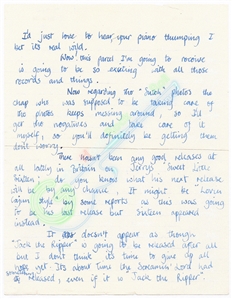 I'd just love to hear your piano thumping I
bet its real wild.
Now this parcel I'm going to receive
is going to be so exciting with all those
records and things.
Now regarding the photos the
chap who was supposed to be taking care of
the photos keeps moving around, so I'll
get the negatives and take care of it
myself, so you'll definitely be getting them
don't worry.
There hasn't been any good releases at
all lately in Britain on Jerry's Sweet Little
Sixteen, do you know what his next release
will be by any chance, It might be Lovin
Cajun Style by some reports as this was going
to be his last release but Sixteen appeared
instead.
It doesn't appear as though
"Jack the Ripper" is going to be released after all
but I don't think its time to give up all
hope yet. Its about time the Screamin' Lord had
something released, even if it is "Jack the Ripper".